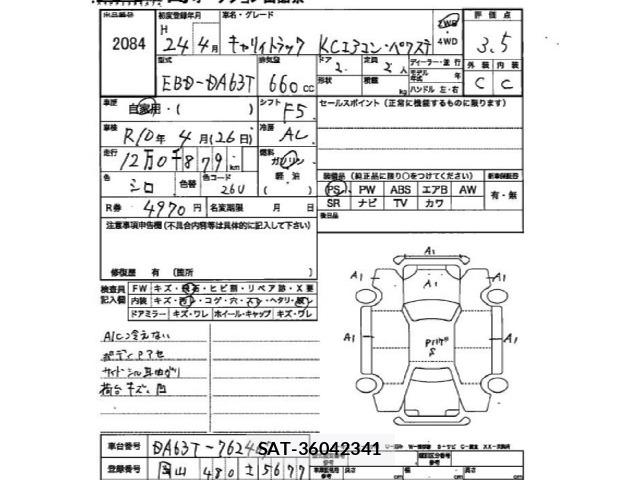 出品番号 初度登録年月 車名・グレード 評価点
2084 H 24年 4月 キャリイトラック KCエアコン・パワステ 2WD ・4WD 3.5
型式 排気量 ドア 定員 ディーラー・並行 外装 内装
EBD-DA63T 660cc 2. 2人 形状 積載 kg モデル年式 年 ハンドル 左・右 C C
車歴 自家用・( ) シフト F5 セールスポイント (正常に機能するものに限ります)
車検 R10年 4月(26日) 冷房 AC
走行 12万0千879km 燃料 ガソリン 軽油 ( )
色 シロ 色替 色コード 26U
装備品 (純正品に限り○をつけてください) 新車保証書
PS PW ABS エアB AW 有・無
SR ナビ TV カワ
R券 4970円 名変期限 月 日 後日品
注意事項申告欄(不具合内容等は具体的に記入して下さい)
修復歴 有 (箇所 )
検査員記入欄 FW キズ・飛石・ヒビ割・リペア跡・X要
内装 キズ・コゲ・穴・ヘタリ
ドアミラー キズ・ワレ ホイール・キャップ キズ・ワレ
A/C冷えない
ボディ
サイドシル
荷台キズ、凹
A1
A1 A1 A1
A1 A1
車台番号 DA63T-7624
SAT-36042341
登録番号 岡山 480 さ 5677 長さ cm 幅 cm 高さ cm